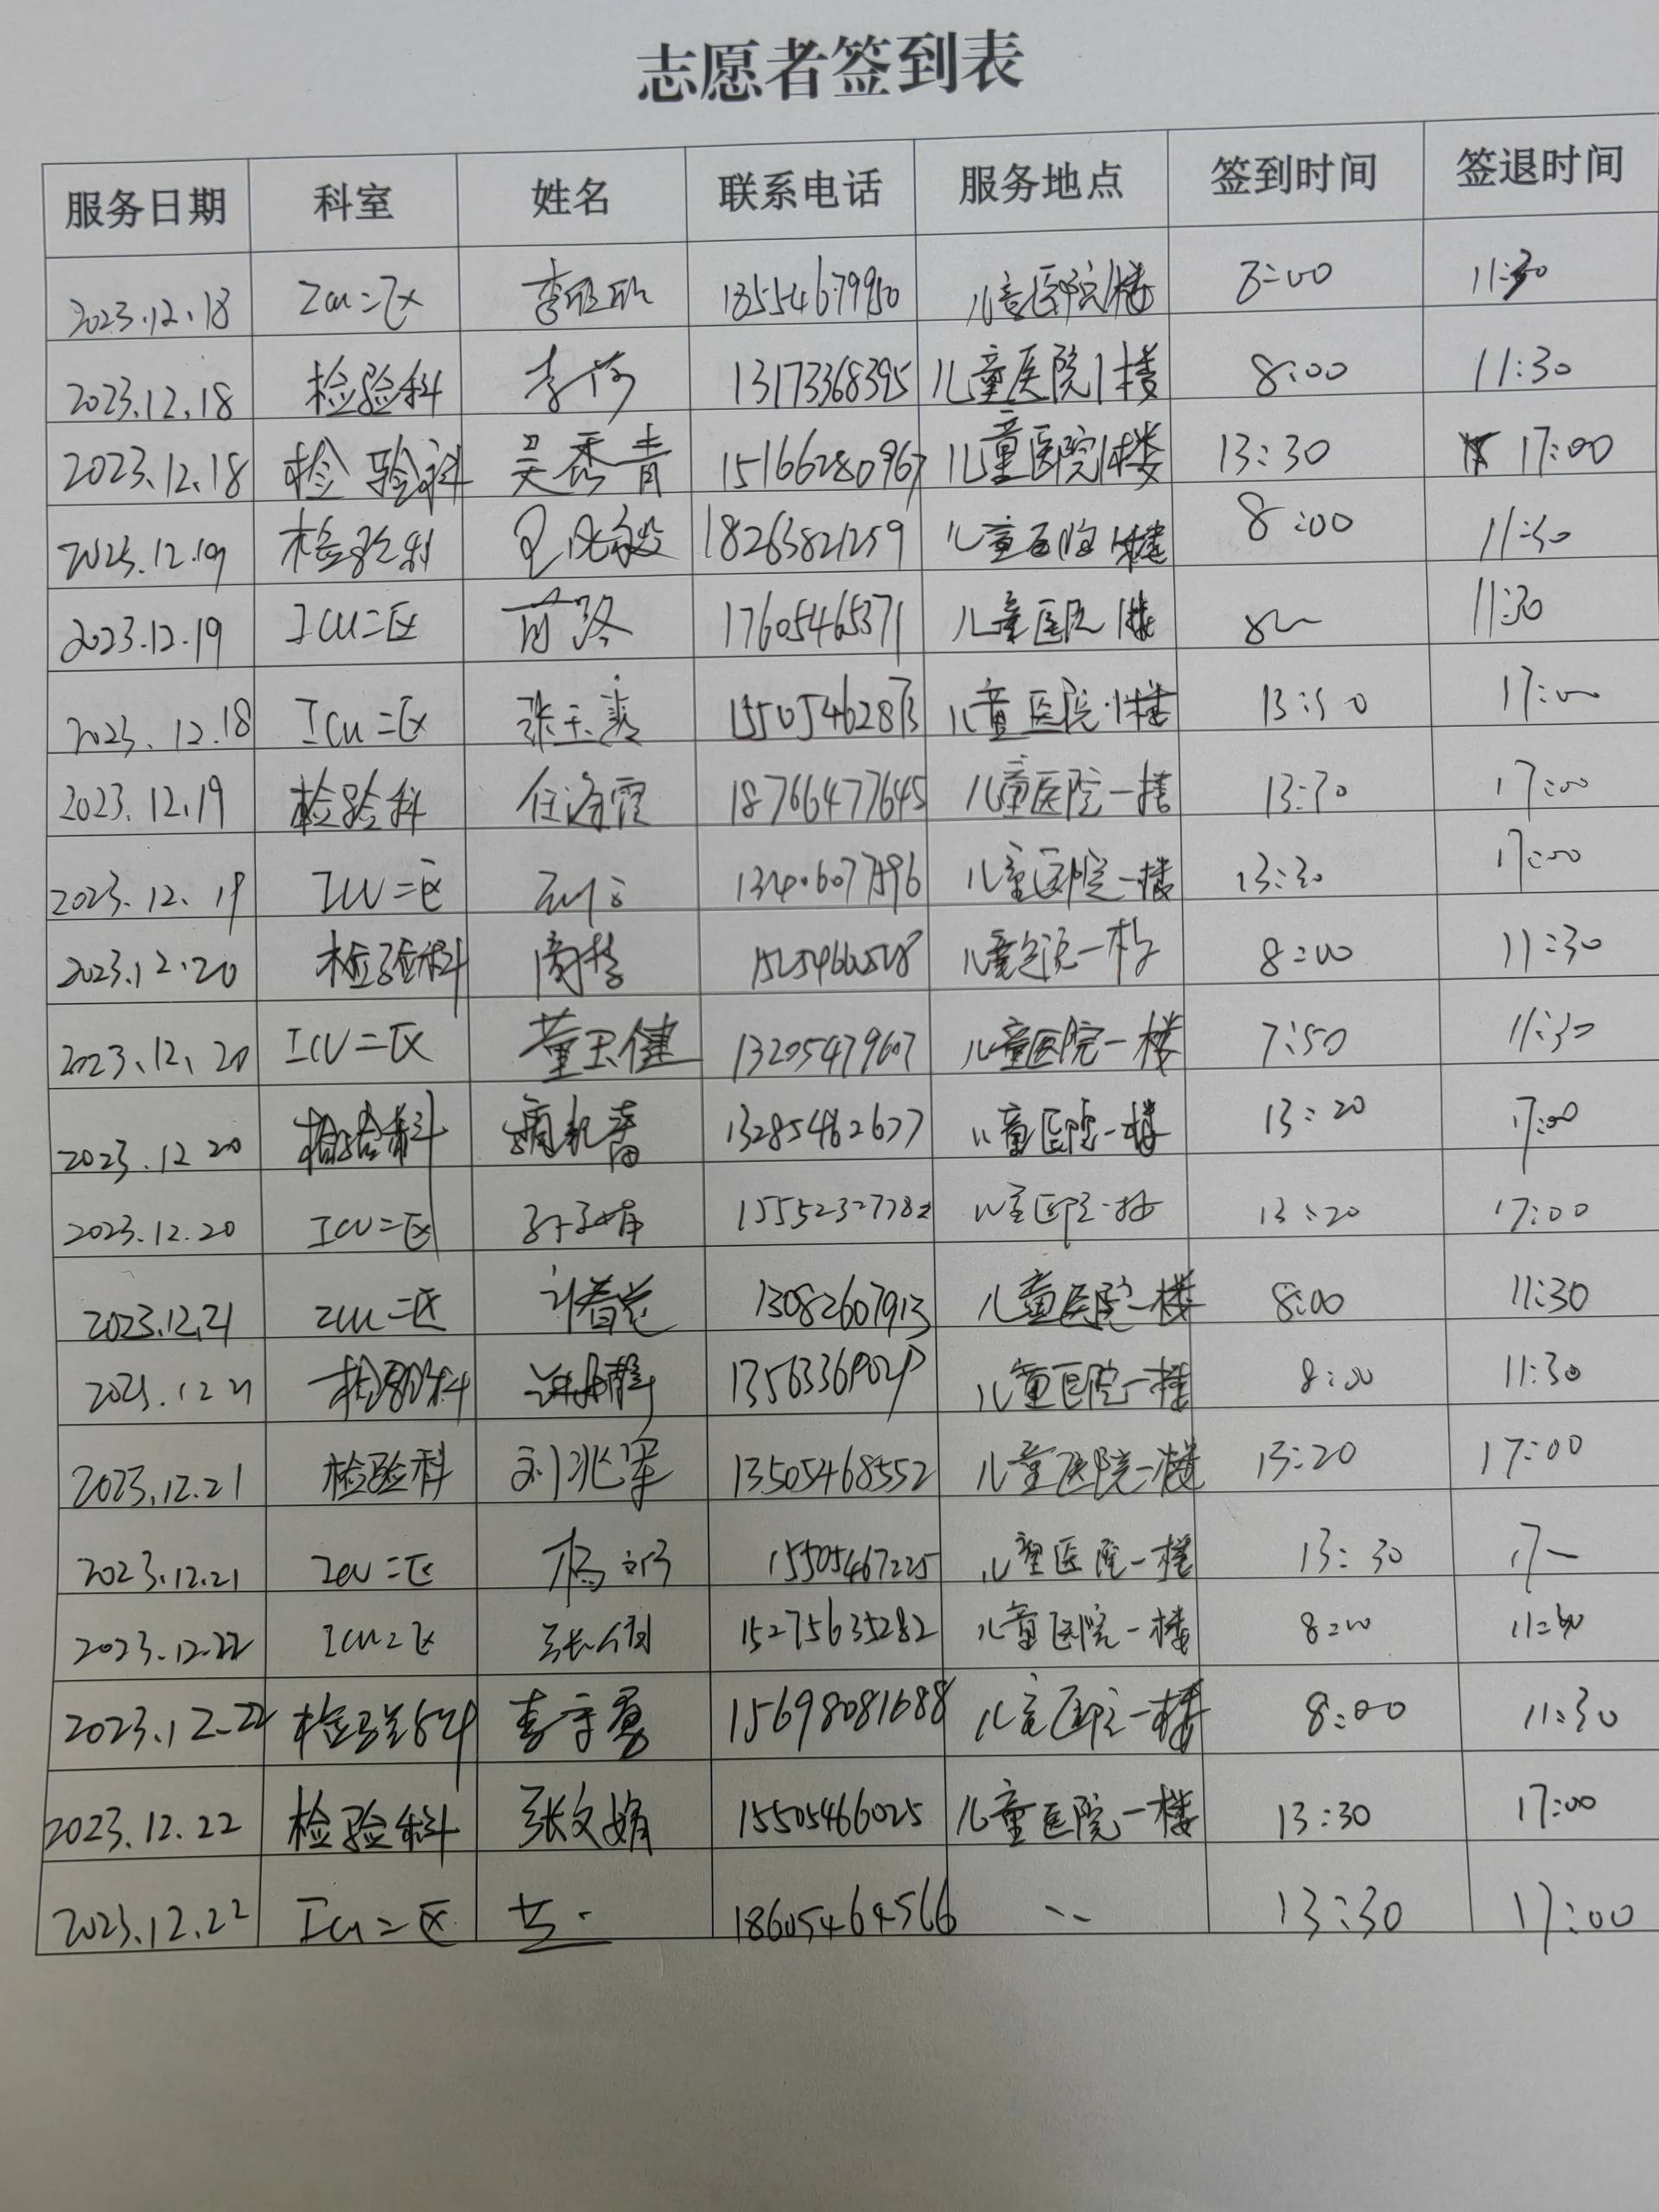 志愿者签到表
服务日期 科室 姓名 联系电话 服务地点 签到时间 签退时间
2023.12.18 ICU二区 18554679950 儿童医院1楼 8:00 11:30
2023.12.18 检验科 李荷 13173368395 儿童医院1楼 8:00 11:30
2023.12.18 检验科 吴秀青 15166280967 儿童医院1楼 13:30 17:00
2023.12.19 检验科 18263821259 儿童医院1楼 8:00 11:30
2023.12.19 ICU二区 17605465371 儿童医院1楼 11:30
2023.12.18 ICU二区 张玉 儿童医院1楼 17:00
2023.12.19 检验科 任海霞 18766477645 儿童医院一楼 13:30 17:00
2023.12.19 ICU二区 儿童医院一楼 13:30 17:00
2023.12.20 检验科 儿童医院一楼 8:00 11:30
2023.12.20 ICU二区 董玉健 13205479607 儿童医院一楼 7:50 11:30
2023.12.20 检验科 13285462677 儿童医院一楼 13:20 17:00
2023.12.20 ICU二区 15552327782 儿童医院一楼 13:20 17:00
2023.12.21 ICU二区 13082607913 儿童医院一楼 8:00 11:30
2023.12.21 检验科 儿童医院一楼 8:00 11:30
2023.12.21 检验科 刘兆军 13505468552 儿童医院一楼 13:20 17:00
2023.12.21 ICU二区 杨 15505467225 儿童医院一楼 13:30
2023.12.22 ICU二区 张 15275635282 儿童医院一楼 8:00 11:30
2023.12.22 检验科 15698081688 儿童医院一楼 8:00 11:30
2023.12.22 检验科 张文娟 15505466025 儿童医院一楼 13:30 17:00
2023.12.22 ICU二区 18605464566 13:30 17:00